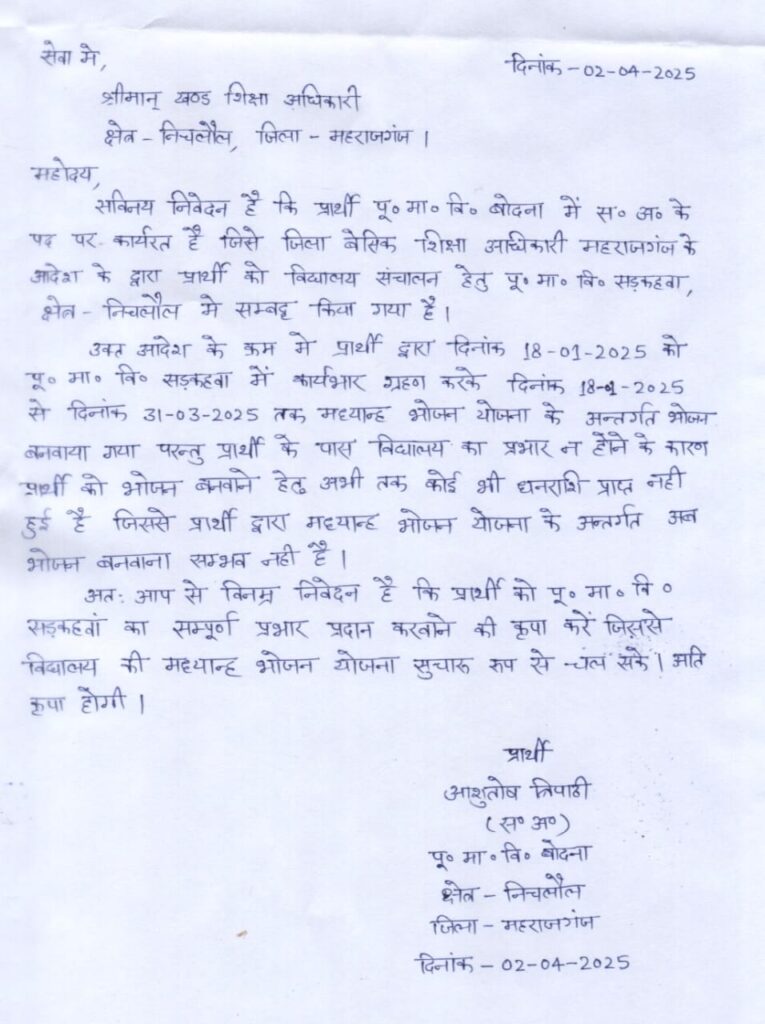 सेवा मे,
दिनांक - 02-04-2025
श्रीमान् खण्ड शिक्षा अधिकारी
क्षेत्र - निचलौल, जिला - महराजगंज।
महोदय,
सविनय निवेदन है कि प्रार्थी पू० मा० वि० बोदना में स० अ० के
पद पर कार्यरत है जिसे जिला बेसिक शिक्षा अधिकारी महराजगंज के
आदेश के द्वारा प्रार्थी को विद्यालय संचालन हेतु पू० मा० वि० सड़कहवा,
क्षेत्र - निचलौल मे सम्बद्ट किया गया है।
उक्त आदेश के क्रम मे प्रार्थी द्वारा दिनांक 18-01-2025 को
पू० मा० वि० सड़कहवा में कार्यभार ग्रहण करके दिनांक 18-01-2025
से दिनांक 31-03-2025 तक मध्यान्ह भोजन योजना के अन्तर्गत भोजन
बनवाया गया परन्तु प्रार्थी के पास विद्यालय का प्रभार न होने के कारण
प्रार्थी को भोजन बनवाने हेतु अभी तक कोई भी धनराशि प्राप्त नही
हुई है जिससे प्रार्थी द्वारा मध्यान्ह भोजन योजना के अन्तर्गत अब
भोजन बनवाना सम्भव नही है।
अतः आप से विनम्र निवेदन है कि प्रार्थी को पू० मा० वि०
सड़कहवां का सम्पूर्ण प्रभार प्रदान करवाने की कृपा करें जिससे
विद्यालय की मध्यान्ह भोजन योजना सुचारू रूप से चल सके। अति
कृपा होगी।
प्रार्थी
आशुतोष त्रिपाठी
(स० अ०)
पू० मा० वि० बोदना
क्षेत्र - निचलौल
जिला - महराजगंज
दिनांक - 02-04-2025